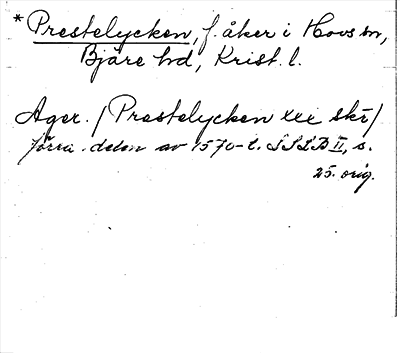 *Prestelycken, f. åker i Hovs sn,
Bjäre hd, Krist. l.
Ager. / Prestelycken xxx skr/
förra delen av 1570-t. SSLB II, s.
25. orig.